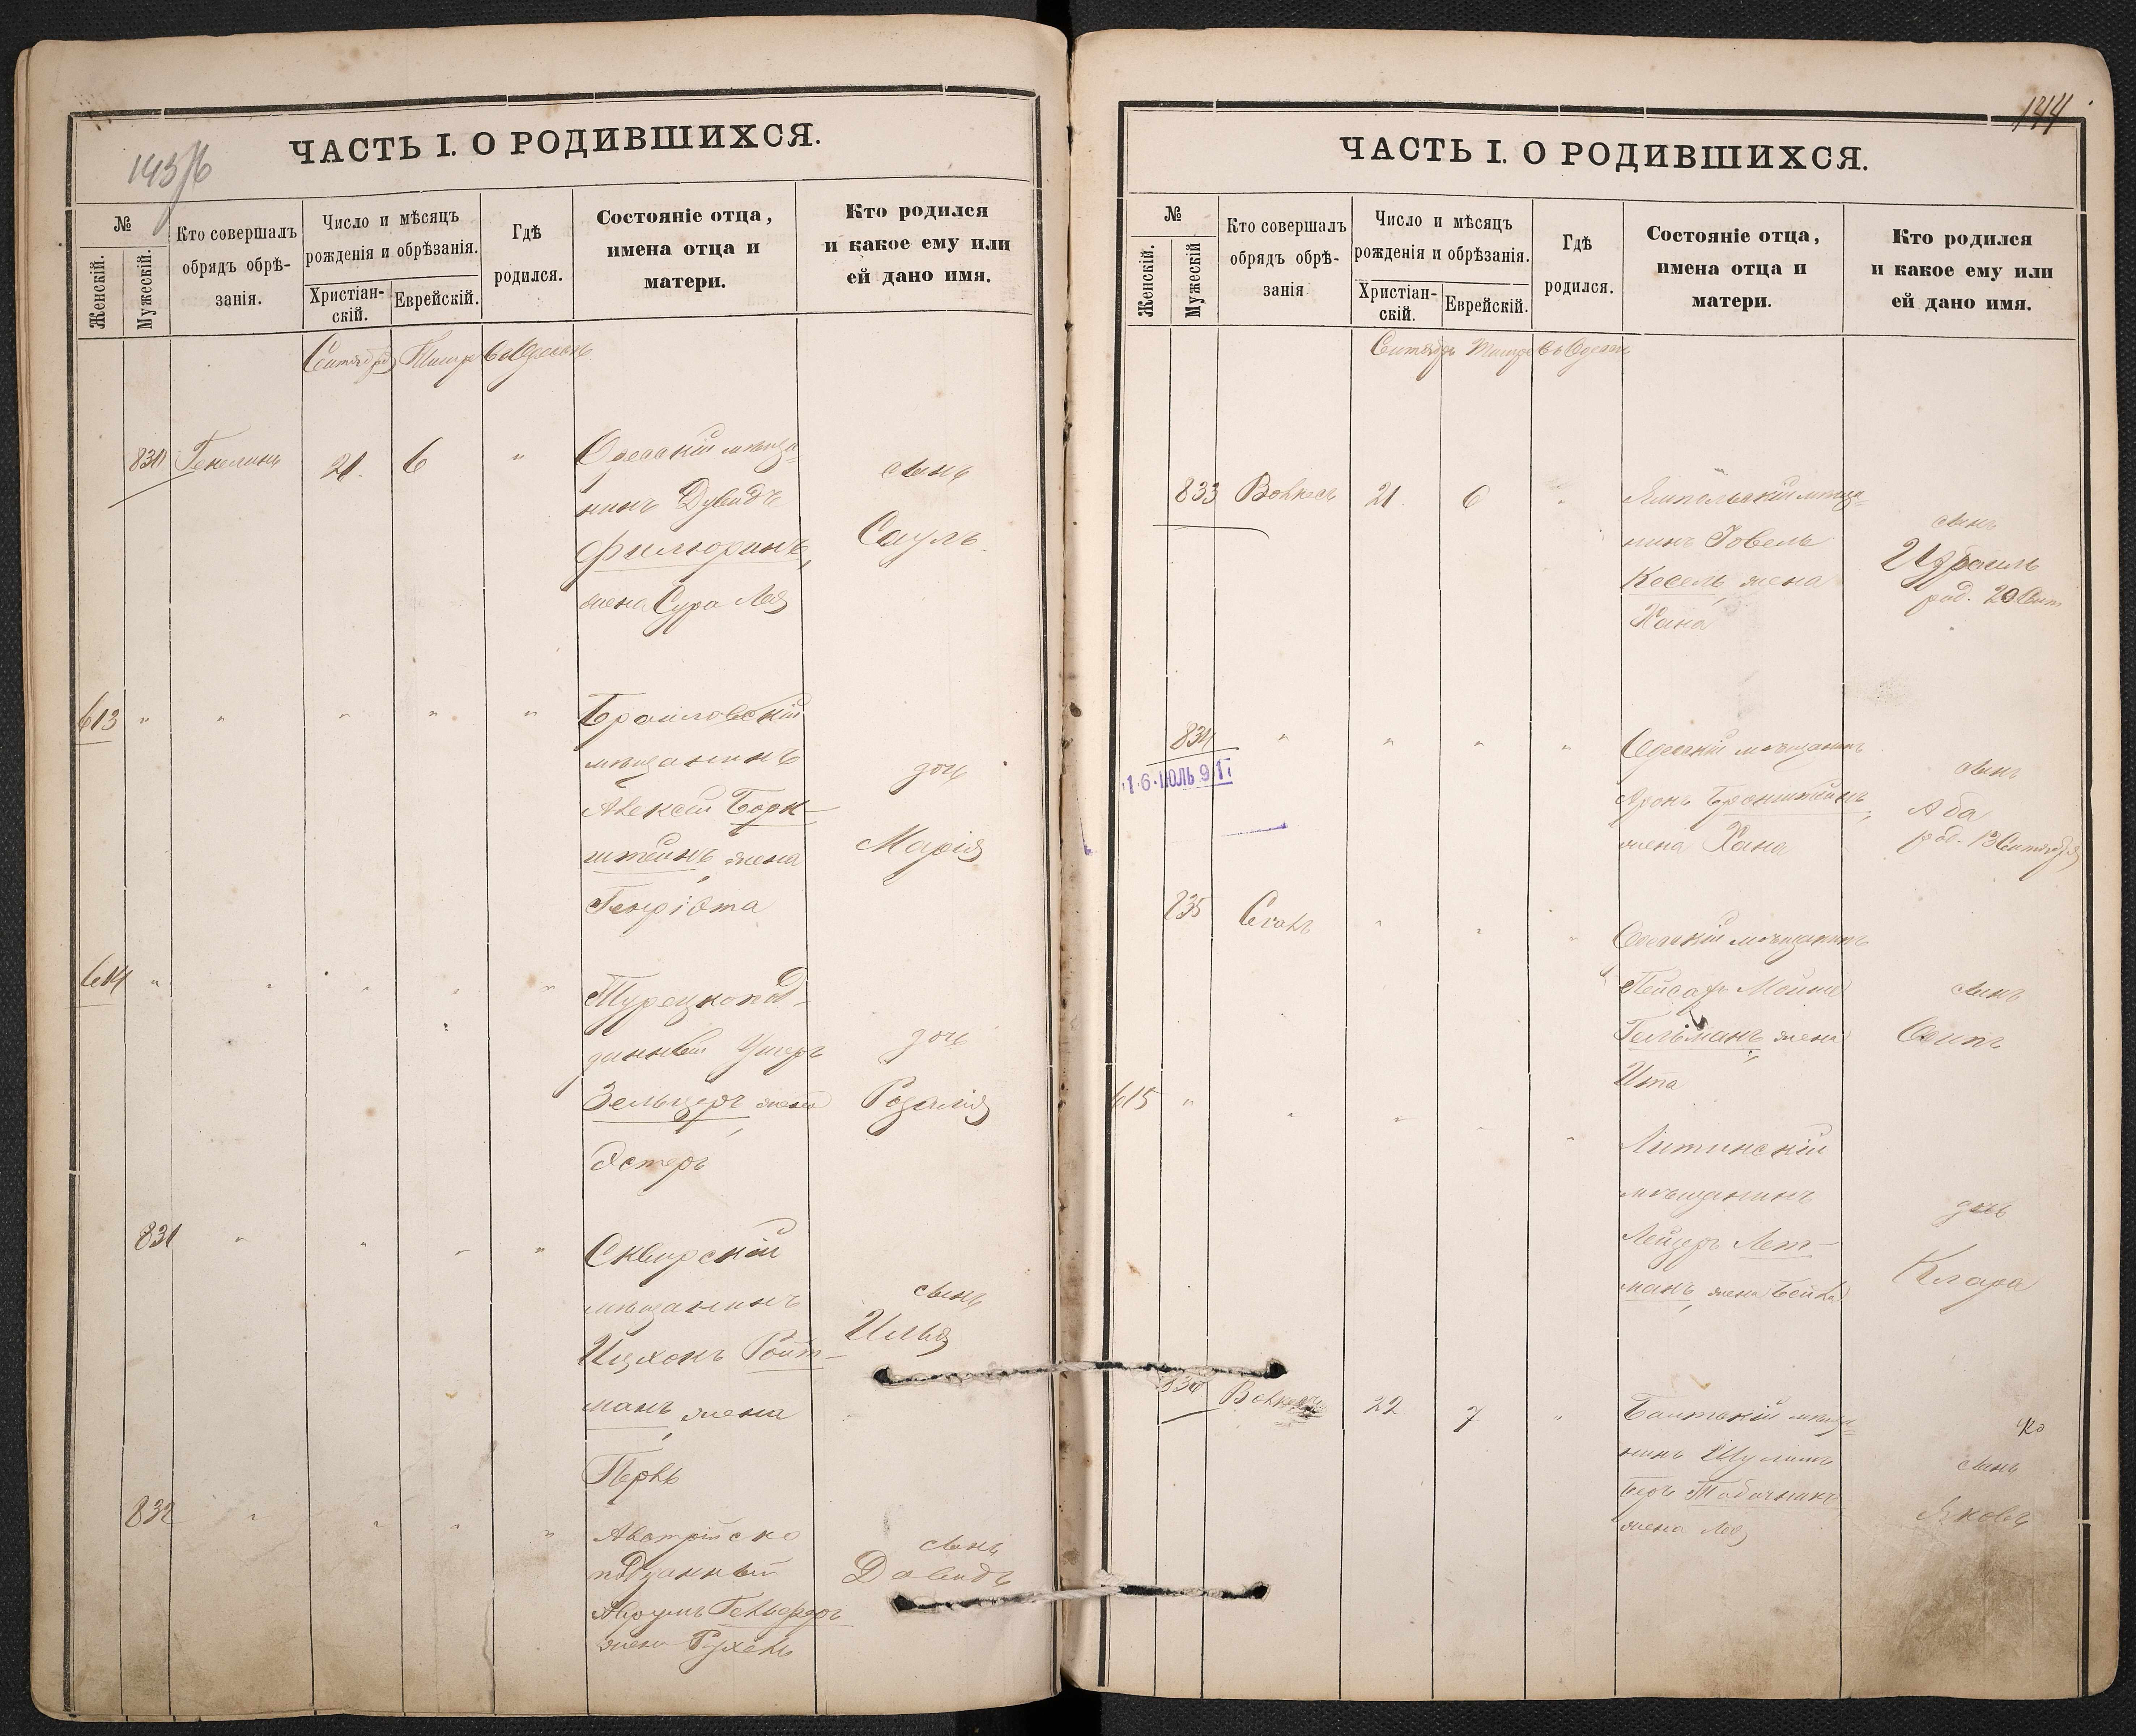 143/б
ЧАСТЬ I. О РОДИВШИХСЯ.
№
Женскій.
Мужескій.
Кто совершалъ
обрядъ обрѣ-
занія.
Число и мѣсяцъ
рожденія и обрѣзанія.
Христіан-
скій.
Еврейскій.
Гдѣ
родился.
Состояніе отца,
имена отца и
матери.
Кто родился
и какое ему или
ей дано имя.
Сентябрь Тишре
830 21. 6 "
Одесскій мѣща-
нинъ Дувидъ
Филюринъ,
жена Сура Лея
сынъ
Саулъ.
613 " " " " "
Браиловскій
мѣщанинъ
Алексѣй Борн-
штейнъ, жена
Генріэта
дочь
Марія
614 " " " " "
Турецкопод-
данный Ушеръ
Зельцеръ, жена
Эстеръ
дочь
Розалія
831 " " " "
Сквирскій
мѣщанинъ
Ицхокъ Ройт-
манъ, жена
Перль
сынъ
Илья
832 " " " "
Австрійско
подданный
жена Рухель
сынъ
Давидъ
144
ЧАСТЬ I. О РОДИВШИХСЯ.
№
Женскій.
Мужескій
Кто совершалъ
обрядъ обрѣ-
занія.
Число и мѣсяцъ
рожденія и обрѣзанія.
Христіан-
скій.
Еврейскій.
Гдѣ
родился.
Состояніе отца,
имена отца и
матери.
Кто родился
и какое ему или
ей дано имя.
Сентябрь Тишре въ Одессѣ
833 21 6 "
Ямпольскій мѣща-
нинъ Іовель
Кесель, жена
Хана
сынъ
Израиль
род. 20 Сент
834 " " " "
16 ІЮЛЬ 917
Одесскій мѣщанинъ
Аронъ Бронштейнъ,
жена Хана
сынъ
Аба
род. 13 Сентября
835 " " "
Одесскій мѣщанинъ
Пейсахъ Мойше
Гельманъ, жена
Ита
сынъ
615 " " " " "
Литинскій
мѣщанинъ
Лейзеръ Лет-
манъ, жена Бейла
дочь
Клара
836 22 7 "
Балтскій мѣща-
нинъ Шулимъ
Беръ Табачникъ
жена Лея
сынъ
Яковъ